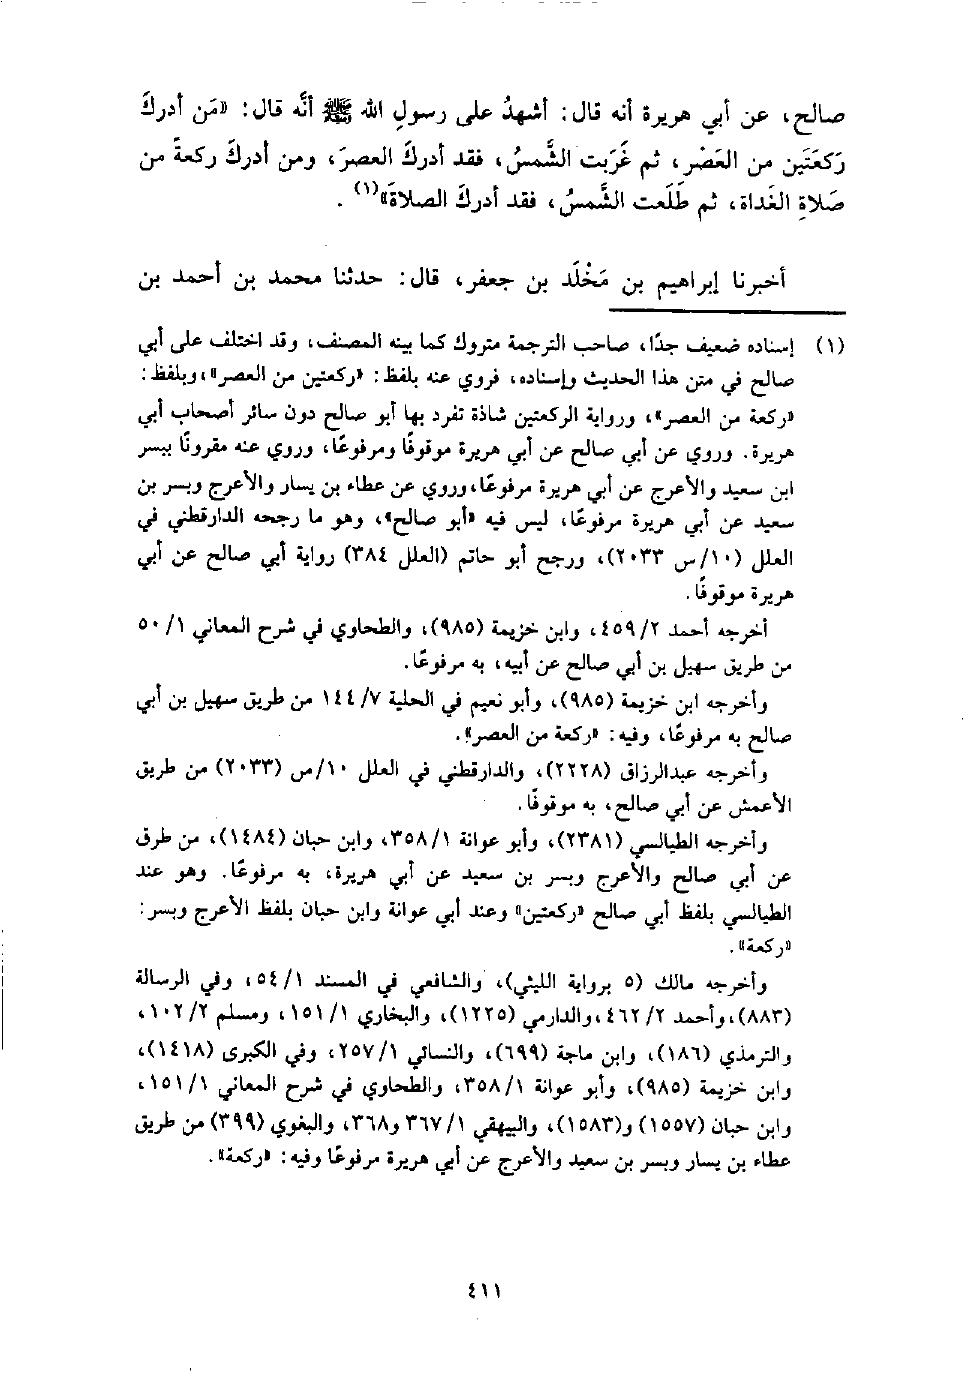 صالح، عن أبي هريرة أنه قال: أشهدُ على رسولِ الله ﷺ أنَّه قال: «مَن أدركَ
رَكعَتَين من العَصْر، ثم غَرَبت الشَّمسُ، فقد أدركَ العصرَ، ومن أدركَ ركعةً من
صَلاةِ الغَداة، ثم طَلَعت الشَّمسُ، فقد أدركَ الصلاةَ»(١).
أخبرنا إبراهيم بن مَخْلَد بن جعفر، قال: حدثنا محمد بن أحمد بن
(١) إسناده ضعيف جدًا، صاحب الترجمة متروك كما بينه المصنف، وقد اختلف على أبي
صالح في متن هذا الحديث وإسناده، فروي عنه بلفظ: «ركعتين من العصر»، وبلفظ:
«ركعة من العصر»، ورواية الركعتين شاذة تفرد بها أبو صالح دون سائر أصحاب أبي
هريرة. وروي عن أبي صالح عن أبي هريرة موقوفًا ومرفوعًا، وروي عنه مقرونًا ببسر
ابن سعيد والأعرج عن أبي هريرة مرفوعًا، وروي عن عطاء بن يسار والأعرج وبسر بن
سعيد عن أبي هريرة مرفوعًا، ليس فيه «أبو صالح»، وهو ما رجحه الدارقطني في
العلل (١٠/س ٢٠٣٣)، ورجح أبو حاتم (العلل ٣٨٤) رواية أبي صالح عن أبي
هريرة موقوفًا.
أخرجه أحمد ٢/ ٤٥٩، وابن خزيمة (٩٨٥)، والطحاوي في شرح المعاني ١/ ٥٠
من طريق سهيل بن أبي صالح عن أبيه، به مرفوعًا.
وأخرجه ابن خزيمة (٩٨٥)، وأبو نعيم في الحلية ٧/ ١٤٤ من طريق سهيل بن أبي
صالح به مرفوعًا، وفيه: «ركعة من العصر».
وأخرجه عبدالرزاق (٢٢٢٨)، والدارقطني في العلل ١٠/س (٢٠٣٣) من طريق
الأعمش عن أبي صالح، به موقوفًا.
وأخرجه الطيالسي (٢٣٨١)، وأبو عوانة ١/ ٣٥٨، وابن حبان (١٤٨٤)، من طرق
عن أبي صالح والأعرج وبسر بن سعيد عن أبي هريرة، به مرفوعًا. وهو عند
الطيالسي بلفظ أبي صالح «ركعتين» وعند أبي عوانة وابن حبان بلفظ الأعرج وبسر:
«ركعة».
وأخرجه مالك (٥ برواية الليثي)، والشافعي في المسند ١/ ٥٤، وفي الرسالة
(٨٨٣)، وأحمد ٢/ ٤٦٢، والدارمي (١٢٢٥)، والبخاري ١/ ١٥١، ومسلم ٢/ ١٠٢،
والترمذي (١٨٦)، وابن ماجة (٦٩٩)، والنسائي ١/ ٢٥٧، وفي الكبرى (١٤١٨)،
وابن خزيمة (٩٨٥)، وأبو عوانة ١/ ٣٥٨، والطحاوي في شرح المعاني ١/ ١٥١،
وابن حبان (١٥٥٧) و(١٥٨٣)، والبيهقي ١/ ٣٦٧ و٣٦٨، والبغوي (٣٩٩) من طريق
عطاء بن يسار وبسر بن سعيد والأعرج عن أبي هريرة مرفوعًا وفيه: «ركعة».
٤١١